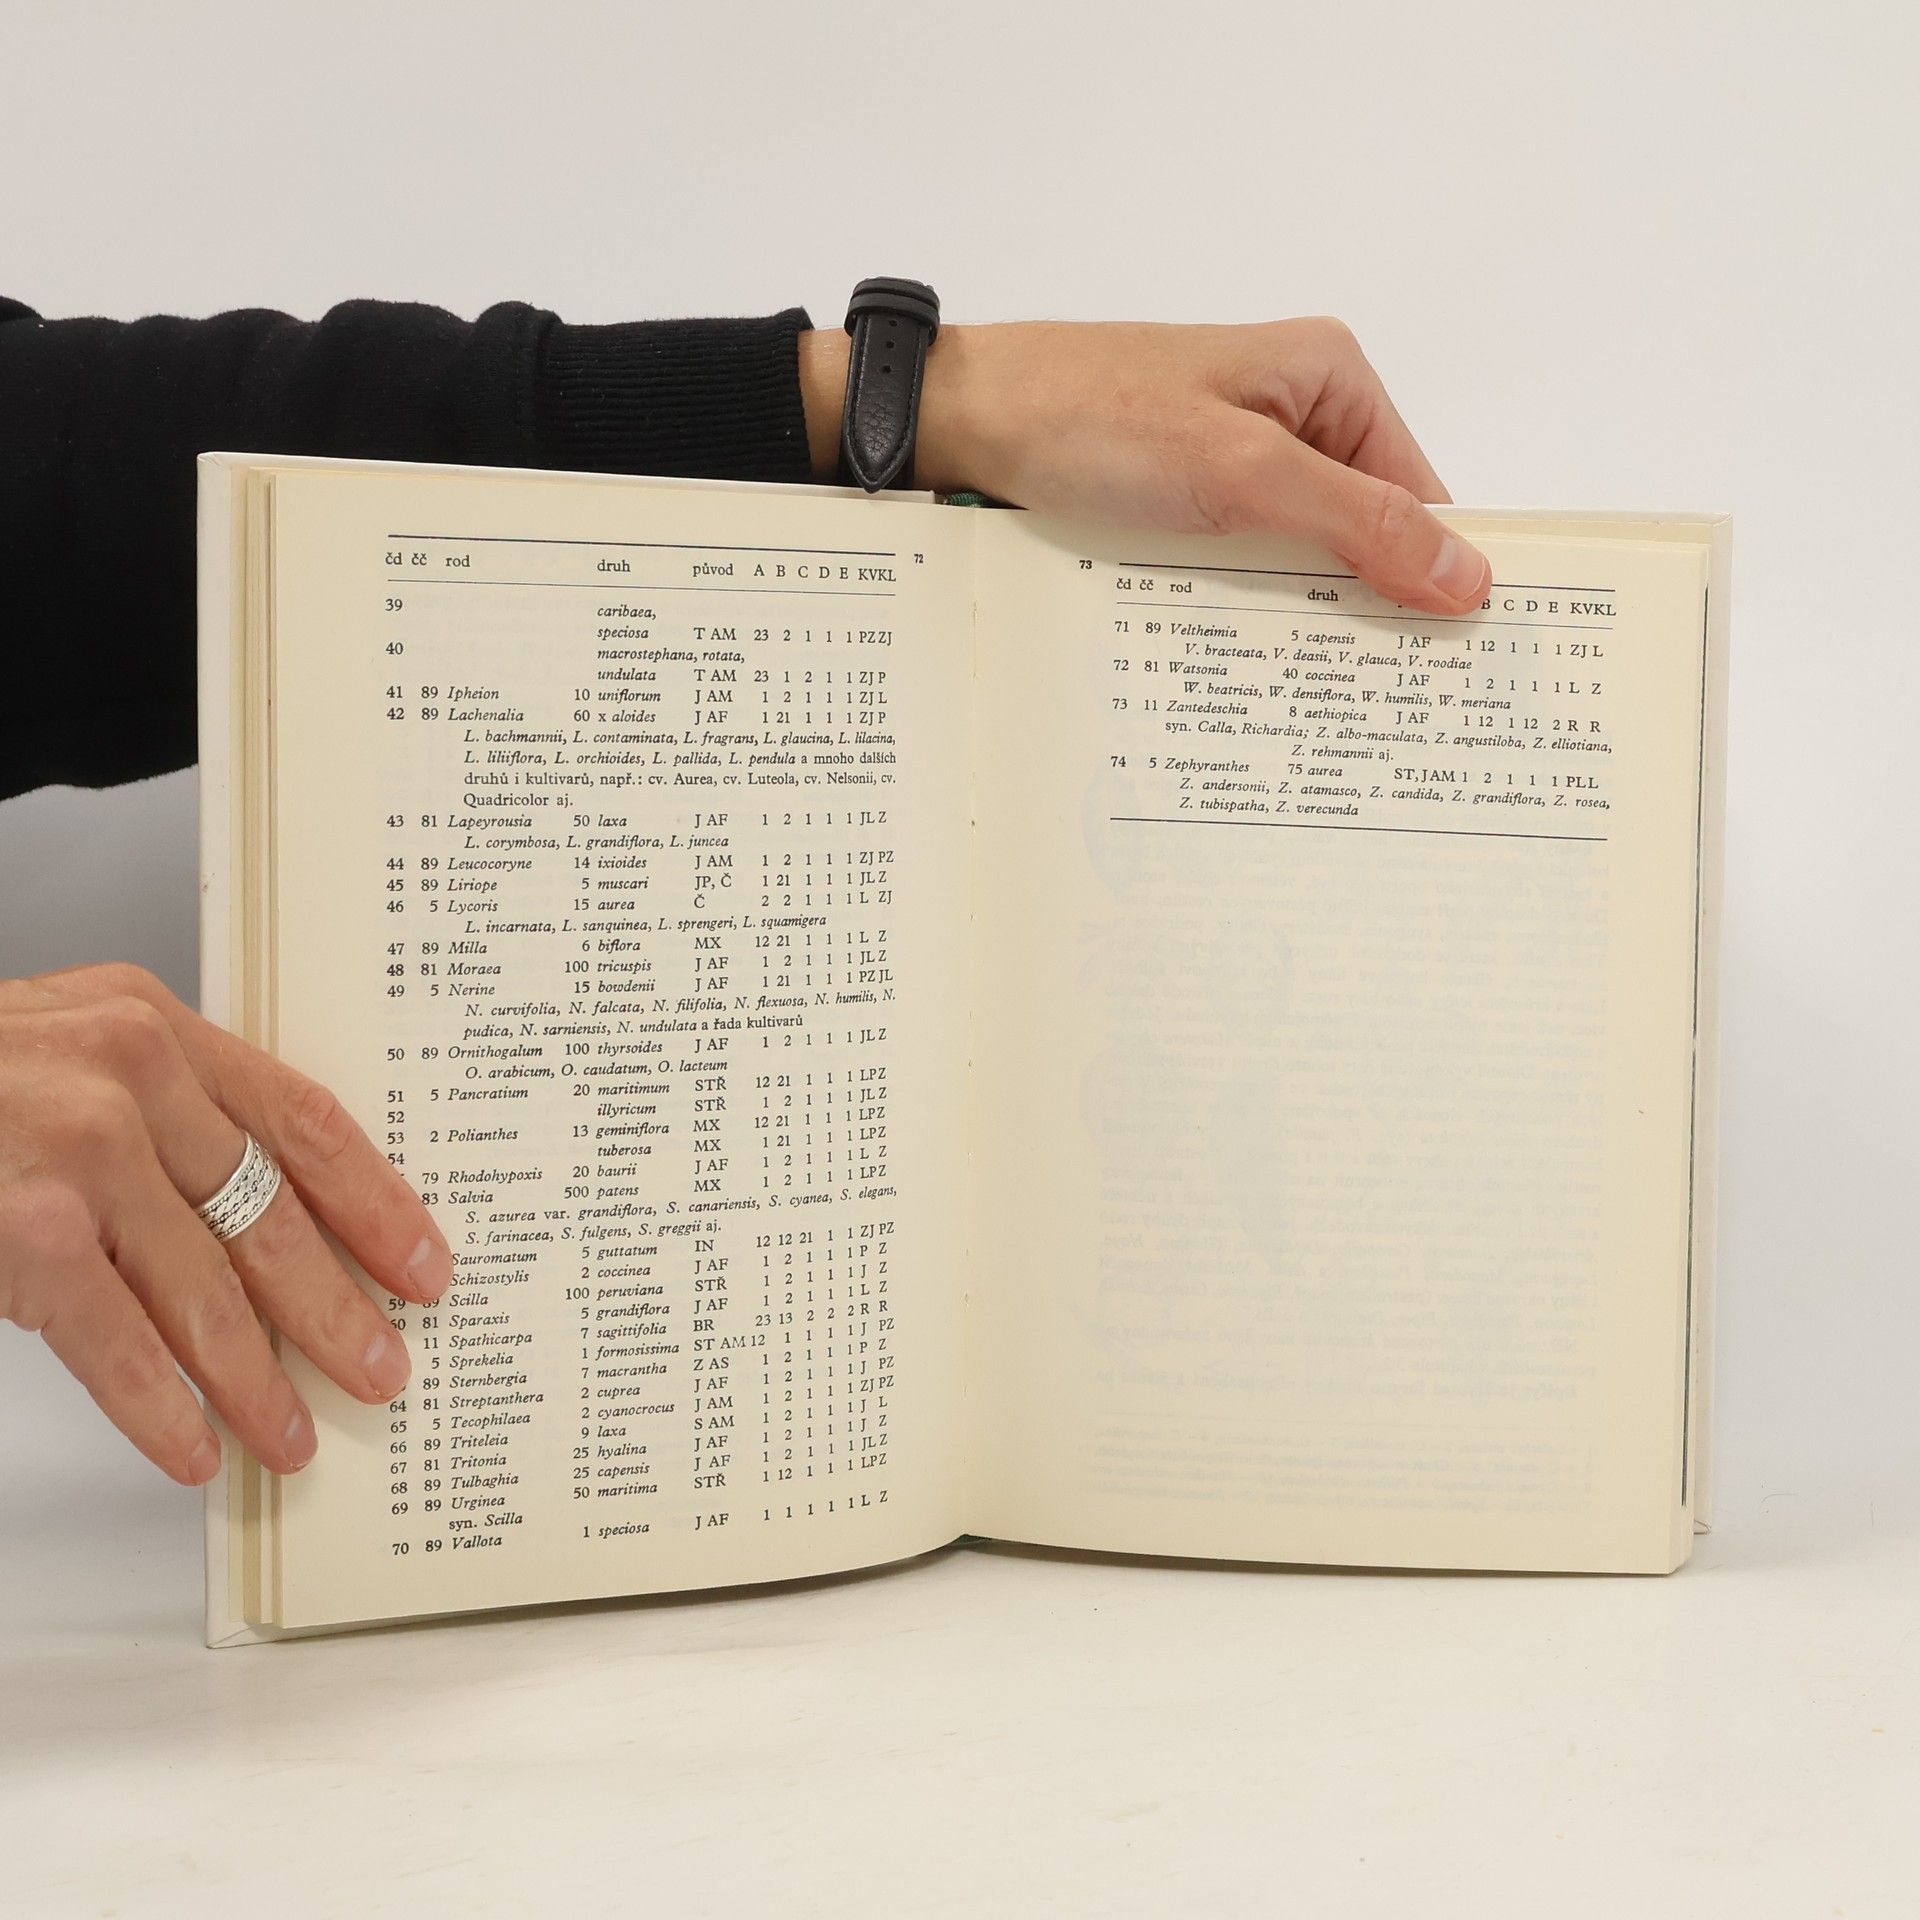 72
čd čč rod druh původ A B C D E KVKL
39 caribaea,
speciosa T AM 23 2 1 1 1 PZ ZJ
40 macrostephana, rotata,
undulata T AM 23 1 2 1 1 ZJ P
41 89 Ipheion 10 uniflorum J AM 1 2 1 1 1 ZJ L
42 89 Lachenalia 60 x aloides J AF 1 21 1 1 1 ZJ P
L. bachmannii, L. contaminata, L. fragrans, L. glaucina, L. lilacina,
L. liliiflora, L. orchioides, L. pallida, L. pendula a mnoho dalších
druhů i kultivarů, např.: cv. Aurea, cv. Luteola, cv. Nelsonii, cv.
Quadricolor aj.
43 81 Lapeyrousia 50 laxa J AF 1 2 1 1 1 JL Z
L. corymbosa, L. grandiflora, L. juncea
44 89 Leucocoryne 14 ixioides J AM 1 2 1 1 1 ZJ PZ
45 89 Liriope 5 muscari JP, Č 1 21 1 1 1 JL Z
46 5 Lycoris 15 aurea Č 2 2 1 1 1 L ZJ
L. incarnata, L. sanquinea, L. sprengeri, L. squamigera
47 89 Milla 6 biflora MX 12 21 1 1 1 L Z
48 81 Moraea 100 tricuspis J AF 1 2 1 1 1 JL Z
49 5 Nerine 15 bowdenii J AF 1 21 1 1 1 PZ JL
N. curvifolia, N. falcata, N. filifolia, N. flexuosa, N. humilis, N.
pudica, N. sarniensis, N. undulata a řada kultivarů
50 89 Ornithogalum 100 thyrsoides J AF 1 2 1 1 1 JL Z
O. arabicum, O. caudatum, O. lacteum
51 5 Pancratium 20 maritimum STŘ 12 21 1 1 1 LPZ
52 illyricum STŘ 1 2 1 1 1 JL Z
53 2 Polianthes 13 geminiflora MX 12 21 1 1 1 LPZ
54 tuberosa MX 1 21 1 1 1 LPZ
79 Rhodohypoxis 20 baurii J AF 1 2 1 1 1 L Z
83 Salvia 500 patens MX 1 2 1 1 1 LPZ
S. azurea var. grandiflora, S. canariensis, S. cyanea, S. elegans,
S. farinacea, S. fulgens, S. greggii aj.
Sauromatum 5 guttatum IN 12 12 21 1 1 ZJ PZ
Schizostylis 2 coccinea J AF 1 2 1 1 1 P Z
59 89 Scilla 100 peruviana STŘ 1 2 1 1 1 J Z
60 81 Sparaxis 5 grandiflora J AF 1 2 1 1 1 L Z
11 Spathicarpa 7 sagittifolia BR 23 13 2 2 2 R R
5 Sprekelia 1 formosissima ST AM 12 1 1 1 1 J PZ
89 Sternbergia 7 macrantha Z AS 1 2 1 1 1 P Z
64 81 Streptanthera 2 cuprea J AF 1 2 1 1 1 J PZ
65 5 Tecophilaea 2 cyanocrocus J AM 1 2 1 1 1 ZJ PZ
66 89 Triteleia 9 laxa S AM 1 2 1 1 1 J L
67 81 Tritonia 25 hyalina J AF 1 2 1 1 1 J Z
68 89 Tulbaghia 25 capensis J AF 1 2 1 1 1 JL Z
69 89 Urginea 50 maritima STŘ 1 12 1 1 1 LPZ
syn. Scilla
70 89 Vallota 1 speciosa J AF 1 1 1 1 1 L Z
73
čd čč rod druh B C D E KVKL
71 89 Veltheimia 5 capensis J AF 1 12 1 1 1 ZJ L
V. bracteata, V. deasii, V. glauca, V. roodiae
72 81 Watsonia 40 coccinea J AF 1 2 1 1 1 L Z
W. beatricis, W. densiflora, W. humilis, W. meriana
73 11 Zantedeschia 8 aethiopica J AF 1 12 1 12 2 R R
syn. Calla, Richardia; Z. albo-maculata, Z. angustiloba, Z. elliotiana,
Z. rehmannii aj.
74 5 Zephyranthes 75 aurea ST, J AM 1 2 1 1 1 PL L
Z. andersonii, Z. atamasco, Z. candida, Z. grandiflora, Z. rosea,
Z. tubispatha, Z. verecunda